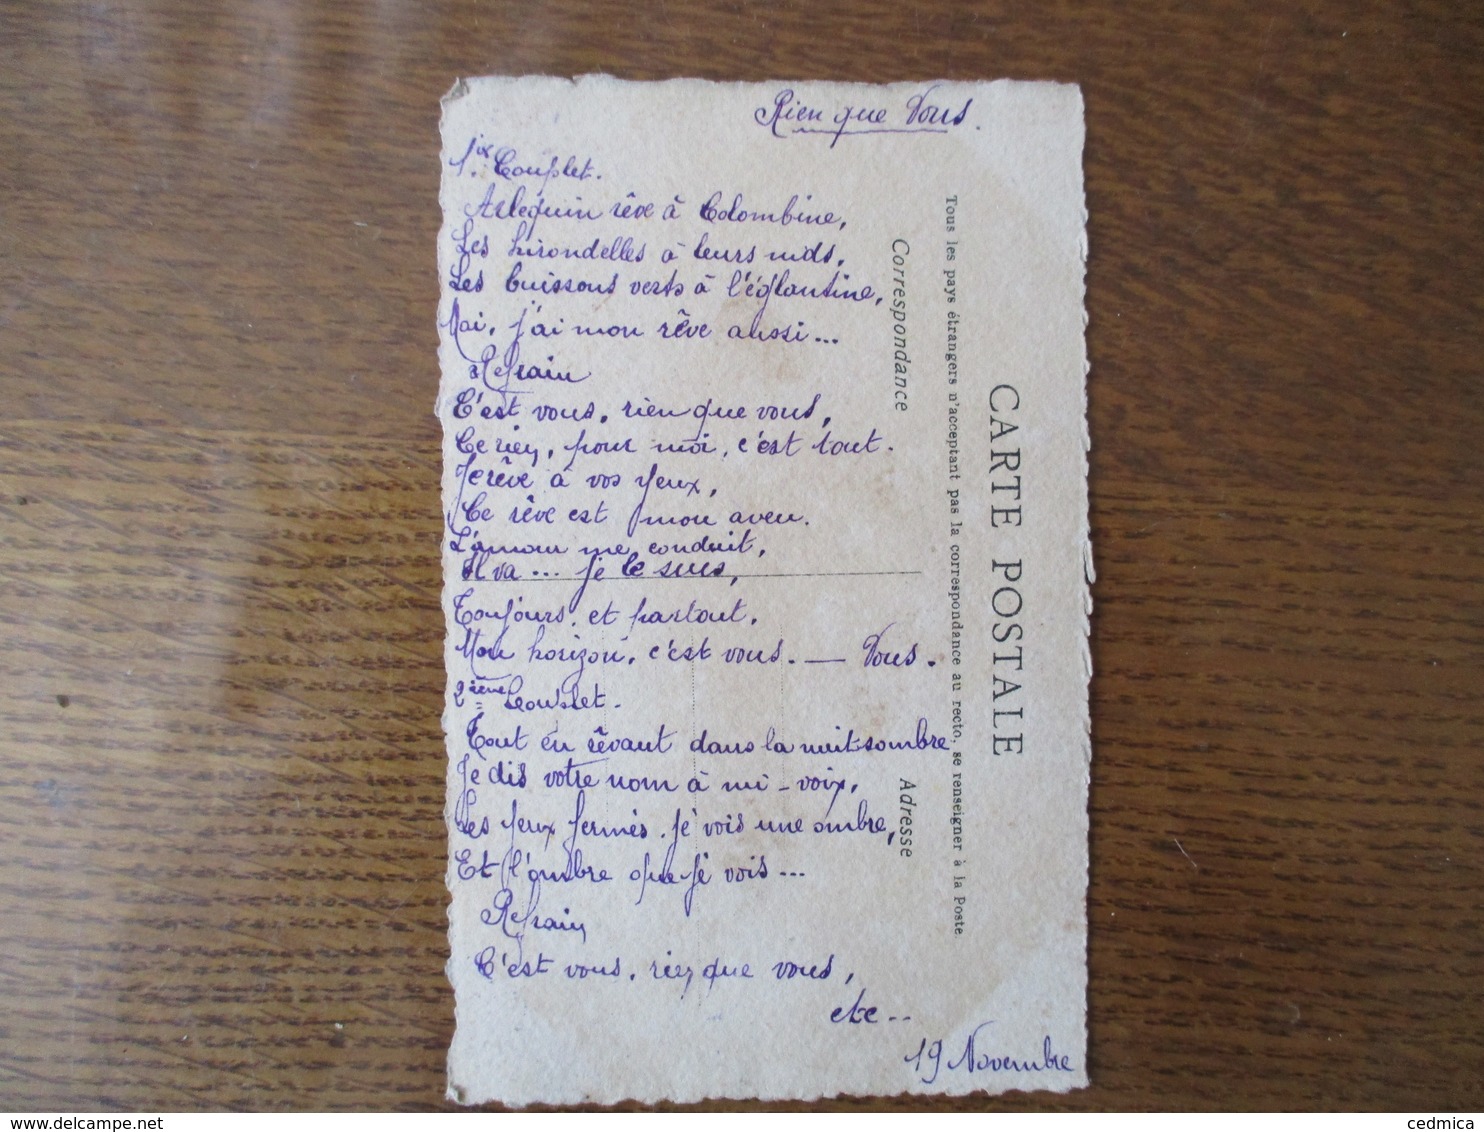 Rien que Vous.
1er Couplet.
Arlequin rêve à Colombine,
Les hirondelles à leurs nids,
Les buissons verts à l'églantine,
Moi, j'ai mon rêve aussi...
Refrain
C'est vous, rien que vous,
Ce rien, pour moi, c'est tout.
Je rêve à vos yeux,
Ce rêve est mon aveu.
L'amour me conduit,
Il va... je le suis,
Toujours, et partout,
Mon horizon, c'est vous. — Vous.
2ième Couplet.
Tout en rêvant dans la nuit sombre
Je dis votre nom à mi-voix,
Les yeux fermés, je vois une ombre,
Et l'ombre que je vois...
Refrain
C'est vous, rien que vous,
etc..
19 Novembre
CARTE POSTALE
Tous les pays étrangers n'acceptant pas la correspondance au recto, se renseigner à la Poste
Correspondance
Adresse
delcampe.net
cedmica